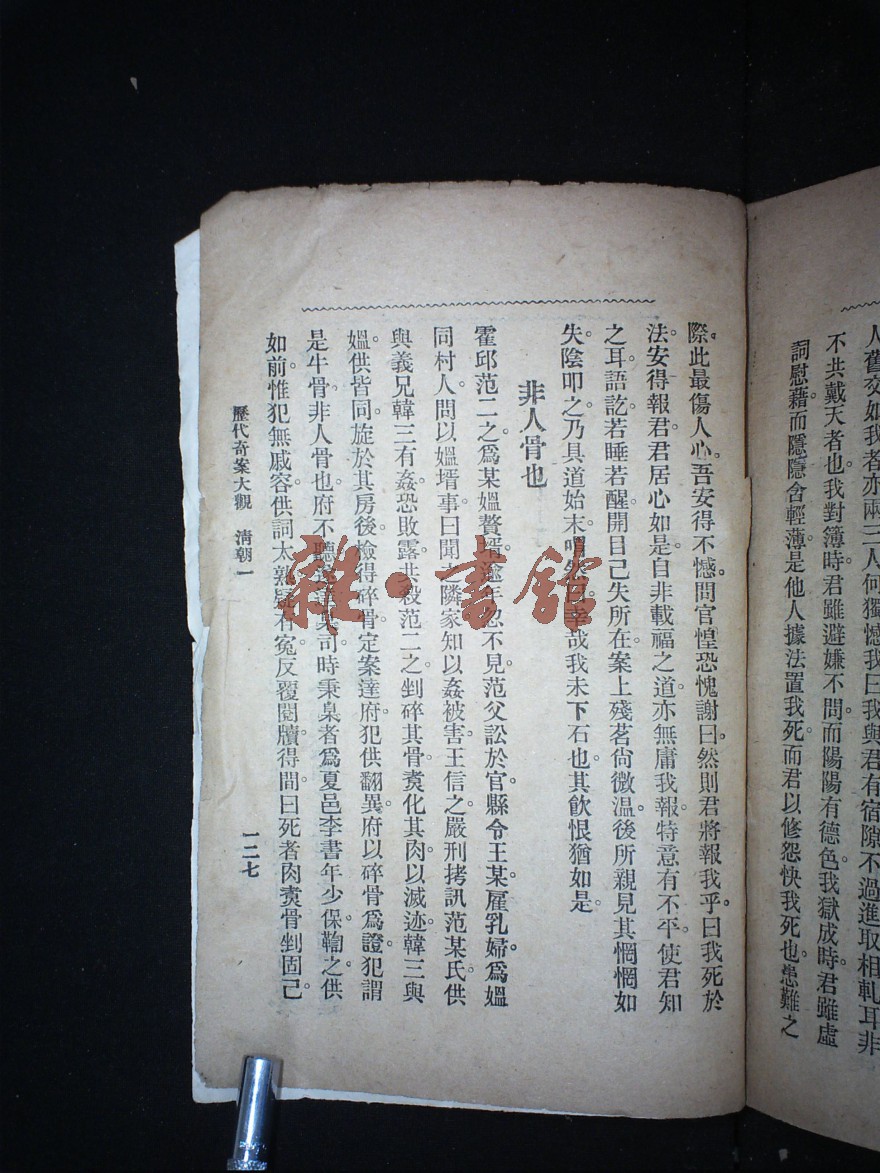 人舊交如我者亦兩三人何獨憾我曰我與君有宿隙不過進取相軋耳非
不共戴天者也。我對簿時君雖避嫌不問而陽陽有德色。我獄成時。君雖虛
詞慰藉。而隱隱含輕薄。是他人據法置我死。而君以修怨快我死也。患難之
際。此最傷人心。吾安得不憾。問官惶恐愧謝曰。然則君將報我乎。曰我死於
法。安得報君。君居心如是。自非載福之道。亦無庸我報。特意有不平。使君知
之耳。語訖。若睡若醒。開目已失所在。案上殘茗尚微溫。後所親見其惘惘如
失。陰叩之。乃具道始末。喟然曰。幸哉我未下石也。其飲恨猶如是。
非人骨也
霍邱范二之。爲某媼贅壻。逾年忽不見。范父訟於官。縣令王某。雇乳婦爲媼
同村人。問以媼壻事。曰聞之隣家。知以姦被害。王信之。嚴刑拷訊。范某氏供
與義兄韓三有姦。恐敗露。共殺范二之。剉碎其骨。煑化其肉以滅迹。韓三與
媼。供皆同。旋於其房後檢得碎骨。定案達府。犯供翻異。府以碎骨爲證。犯謂
是牛骨非人骨也。府不聽。司時秉臬者爲夏邑李書年少保。鞫之。供
如前。惟犯無戚容。供詞太熟。疑有冤。反覆閱牘得間。曰死者肉煑骨剉固已
歷代奇案大觀 清朝一
一二七
雜·書館